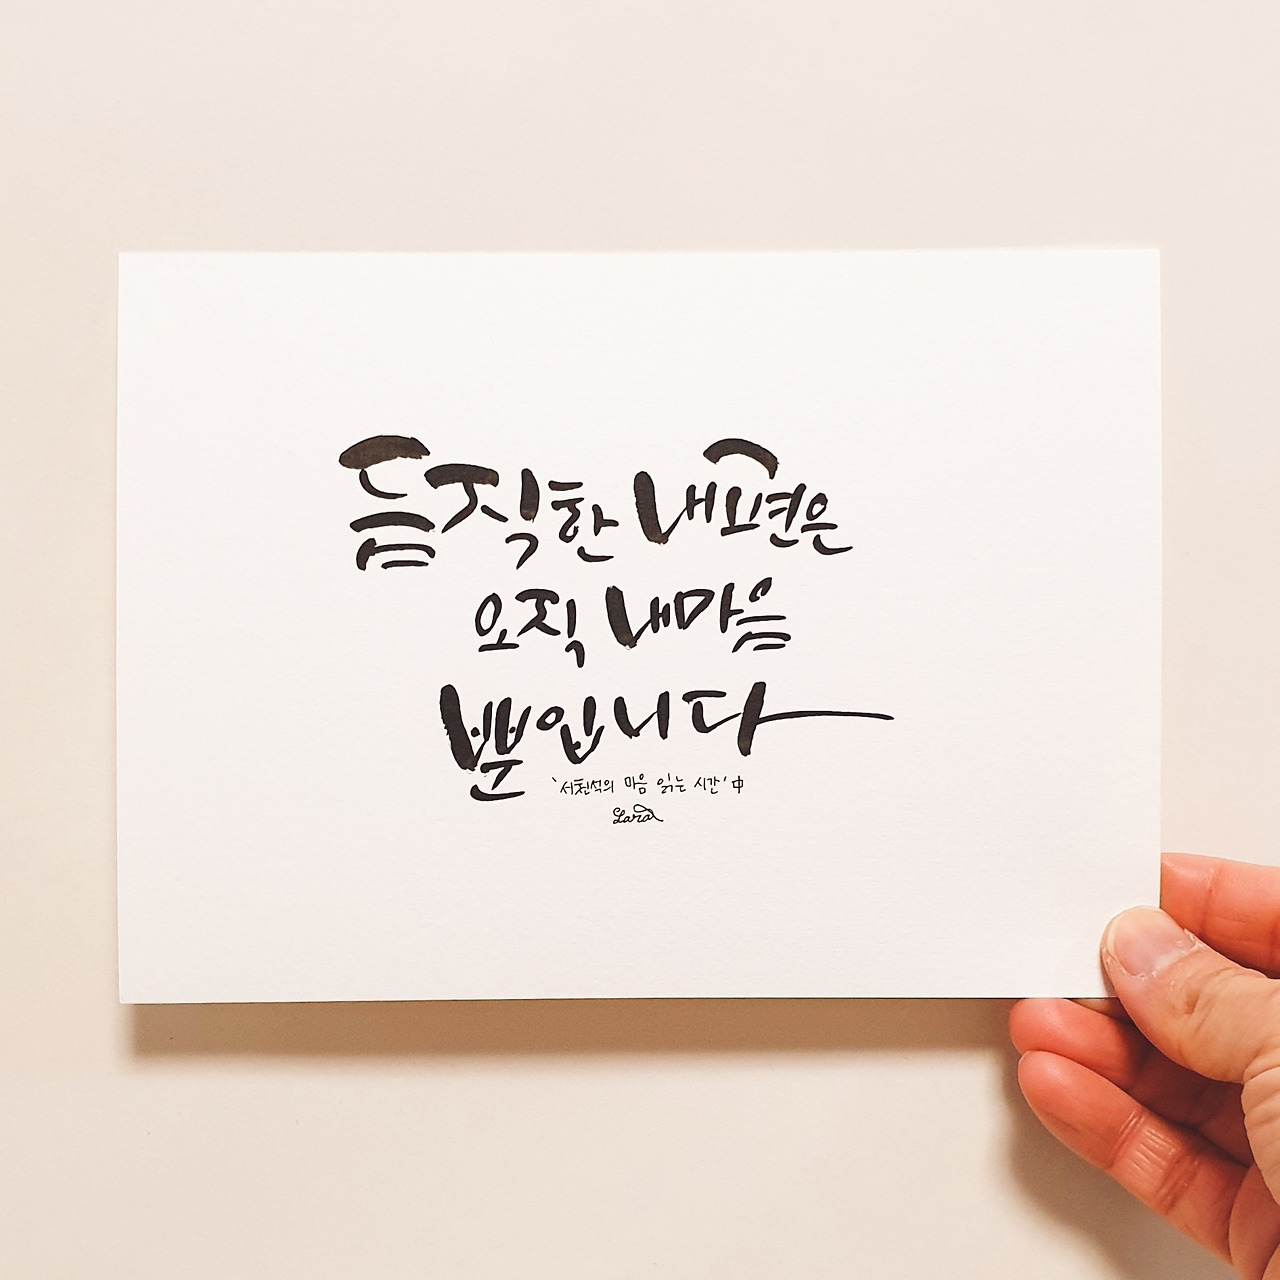 듬직한 내편은
오직 내마음
뿐입니다
'서천석의 마음 읽는 시간' 中
Lara